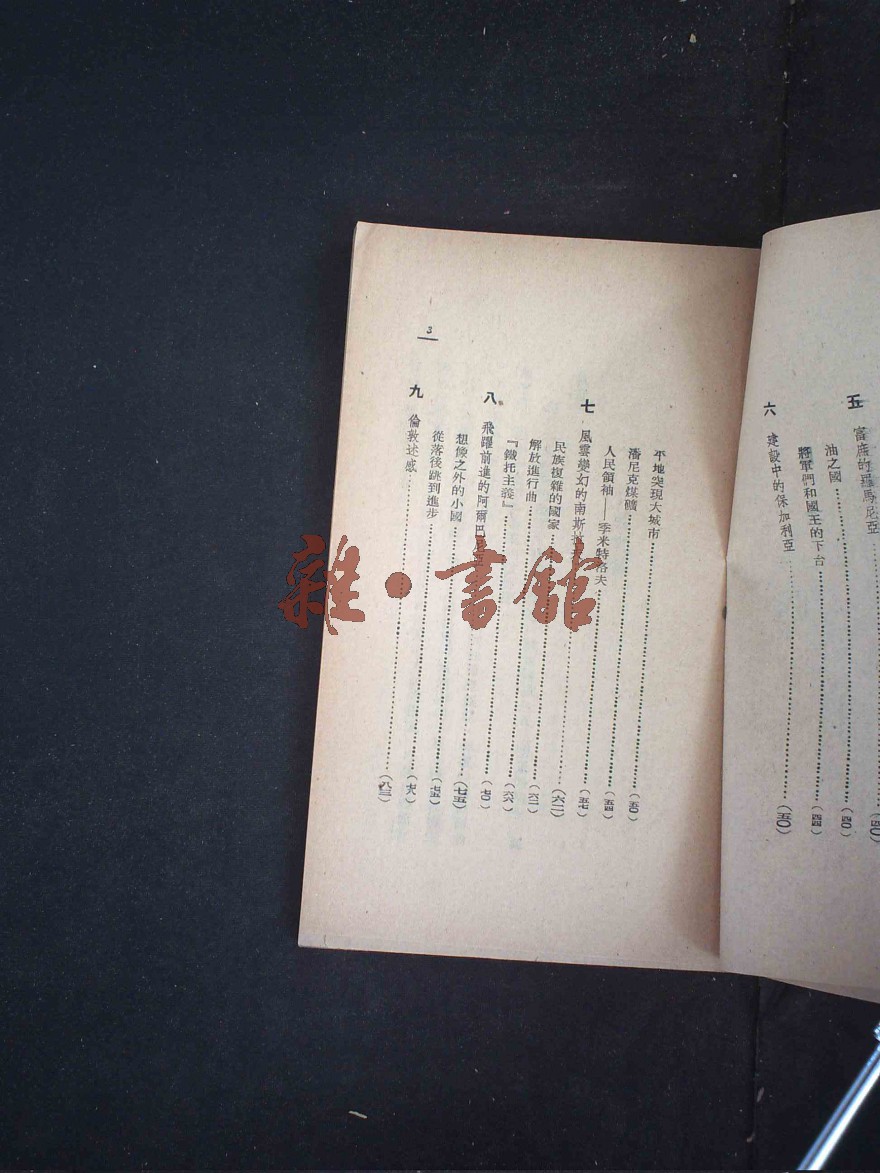 五 富庶的羅馬尼亞……(四〇)
油之國……(四〇)
將軍們和國王的下台……(四四)
六 建設中的保加利亞……(五〇)
平地突現大城市……(五〇)
潘尼克煤礦……(五四)
人民領袖——季米特洛夫……(五七)
七 風雲變幻的南斯……(六二)
民族複雜的國家……(六二)
解放進行曲……(六六)
『鐵托主義』……(七〇)
八 飛躍前進的阿爾巴尼亞……(七五)
想像之外的小國……(七五)
從落後跳到進步……(七八)
九 倫敦述感……(八三)
3
雜·書館